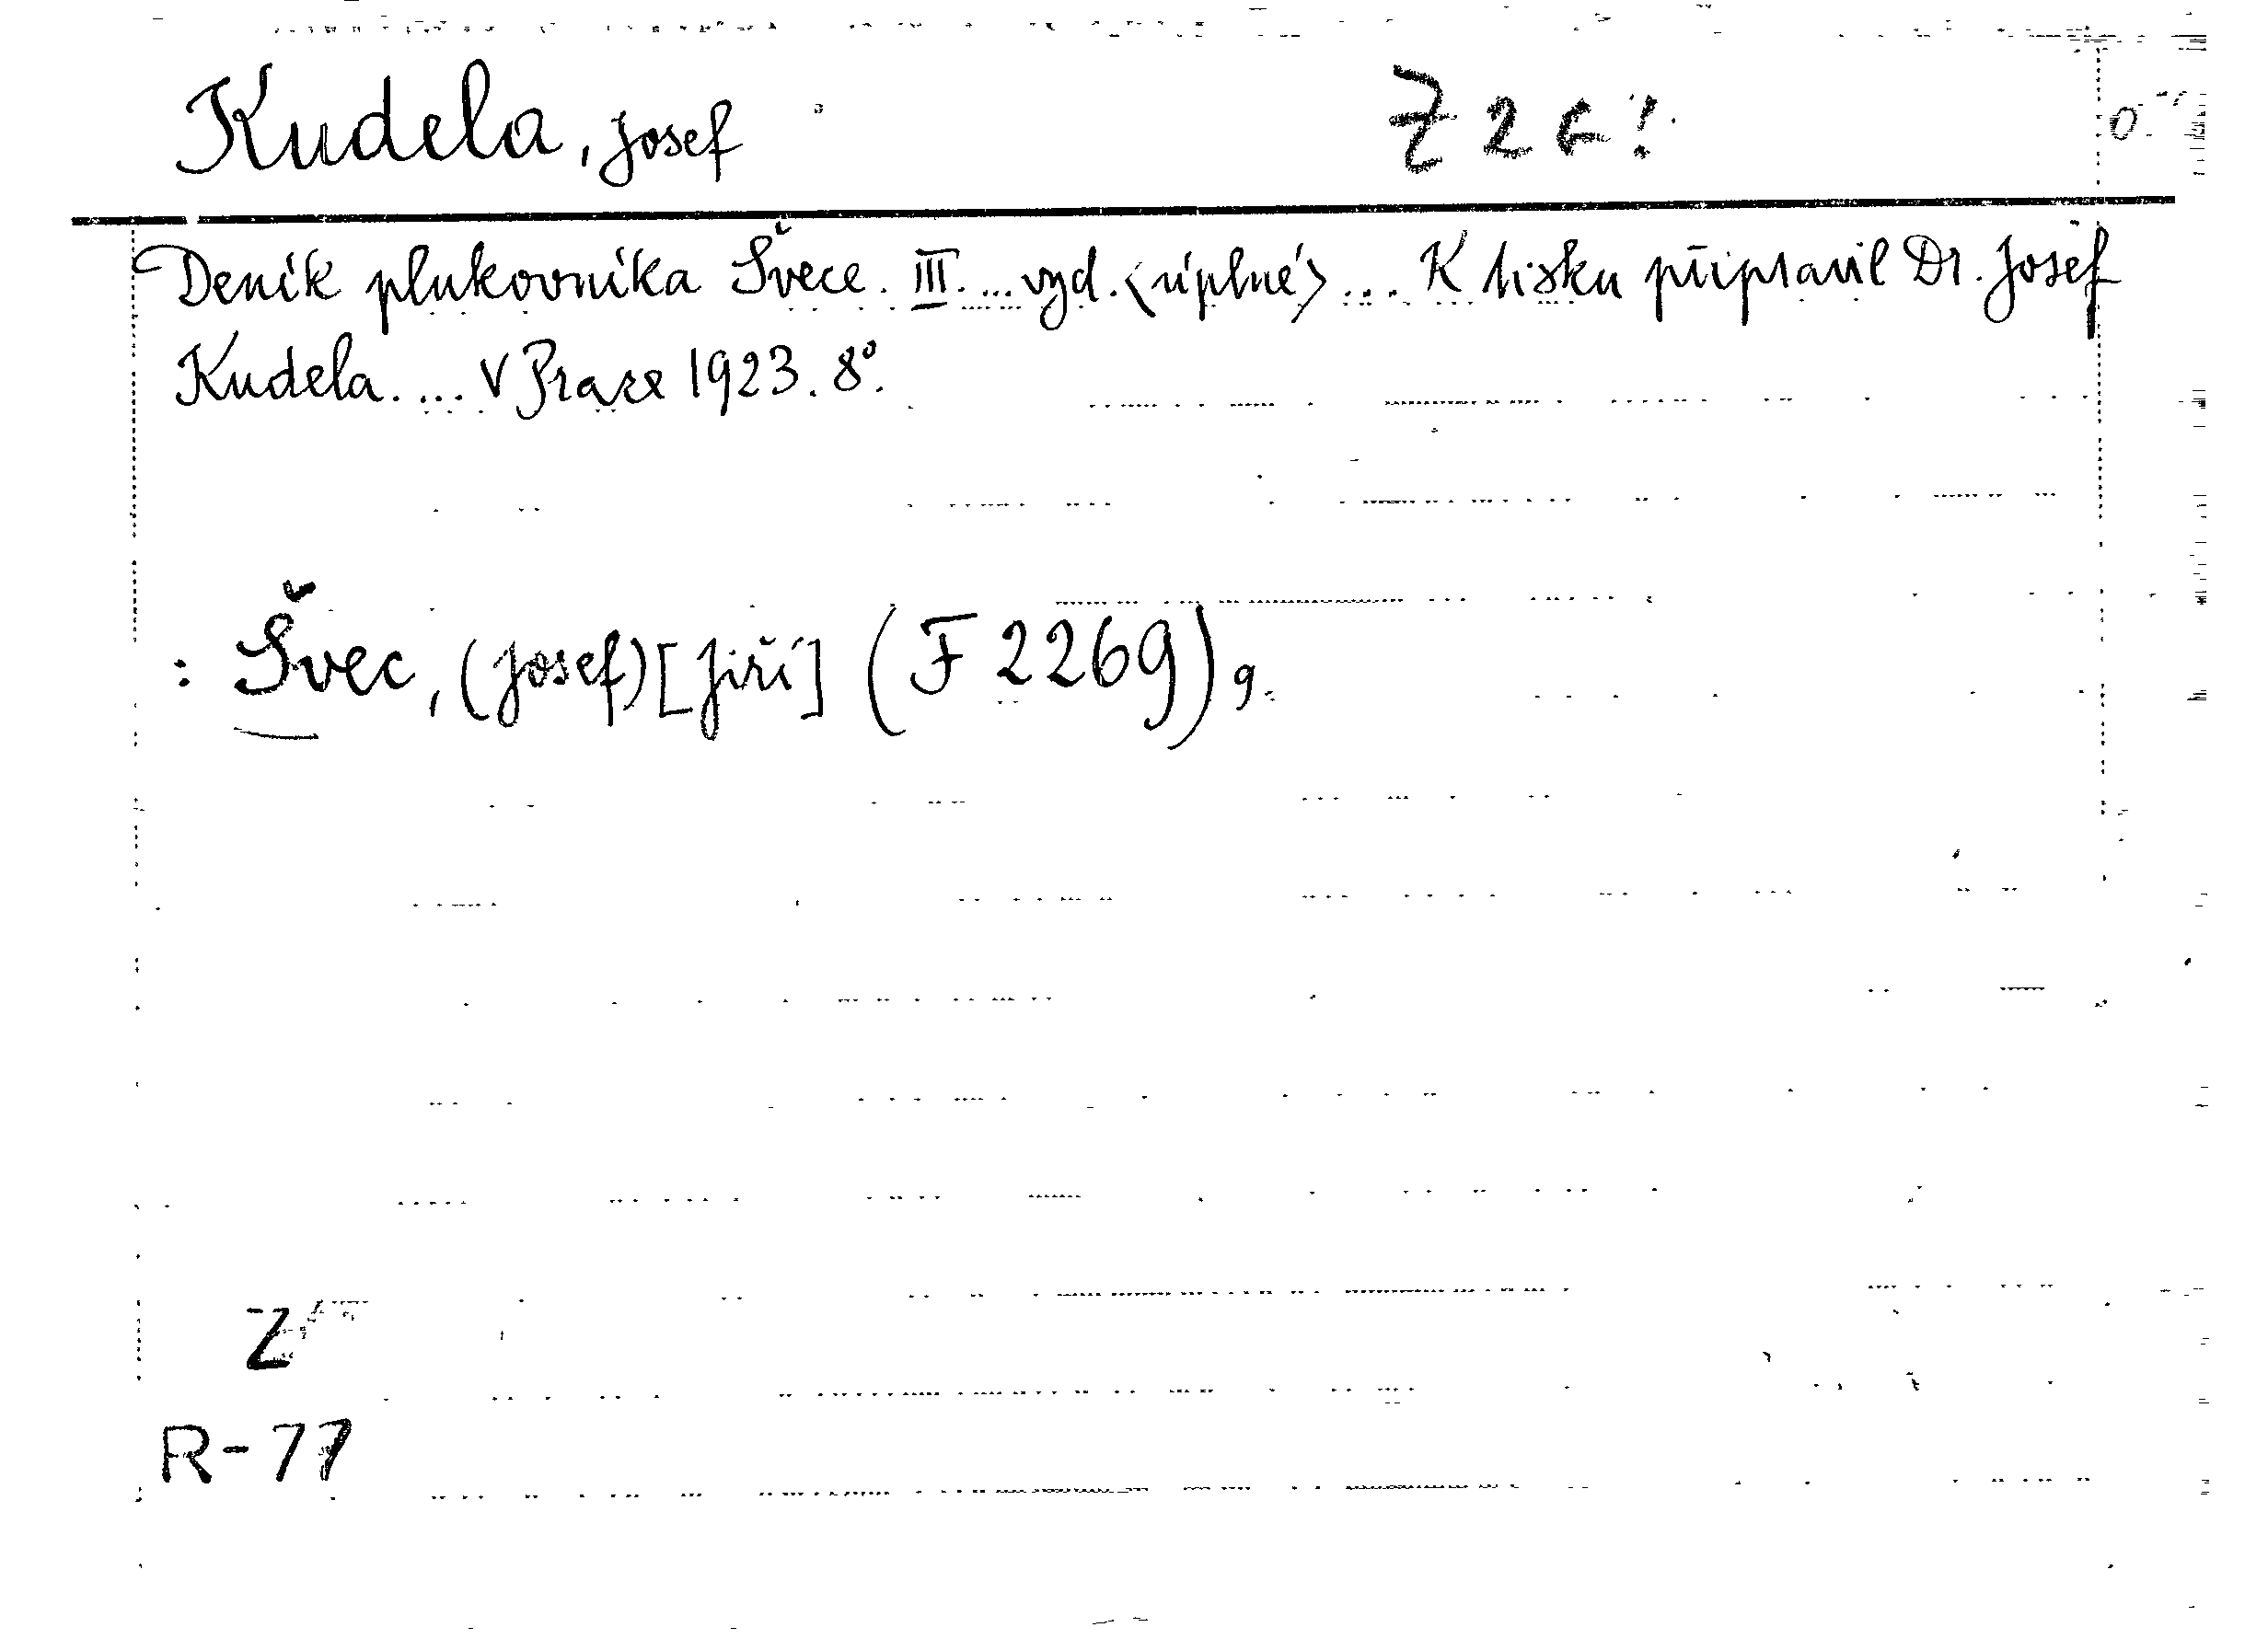 Kudela, Josef
Deník plukovníka Švece. III. ... vyd. <úplné> ... K tisku připravil Dr. Josef
Kudela. ... V Praze 1923. 8°.
: Švec, (Josef) [Jiří] (F 2269) 9.
Z
R-77